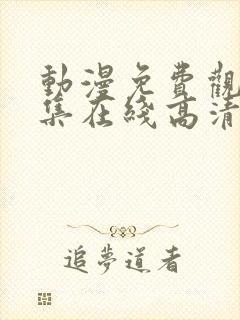 動漫免費觀
集在綫高清
追夢道者